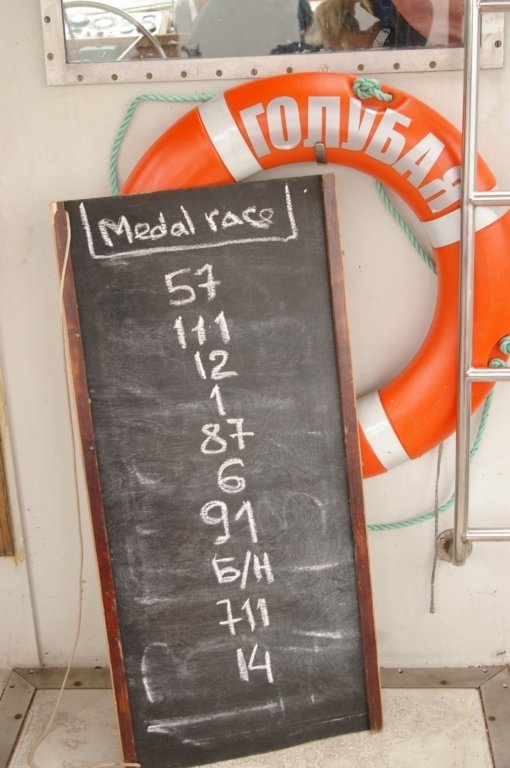 ГОЛУБАЯ
Medal race
57
111
12
1
87
6
91
Б/Н
711
14